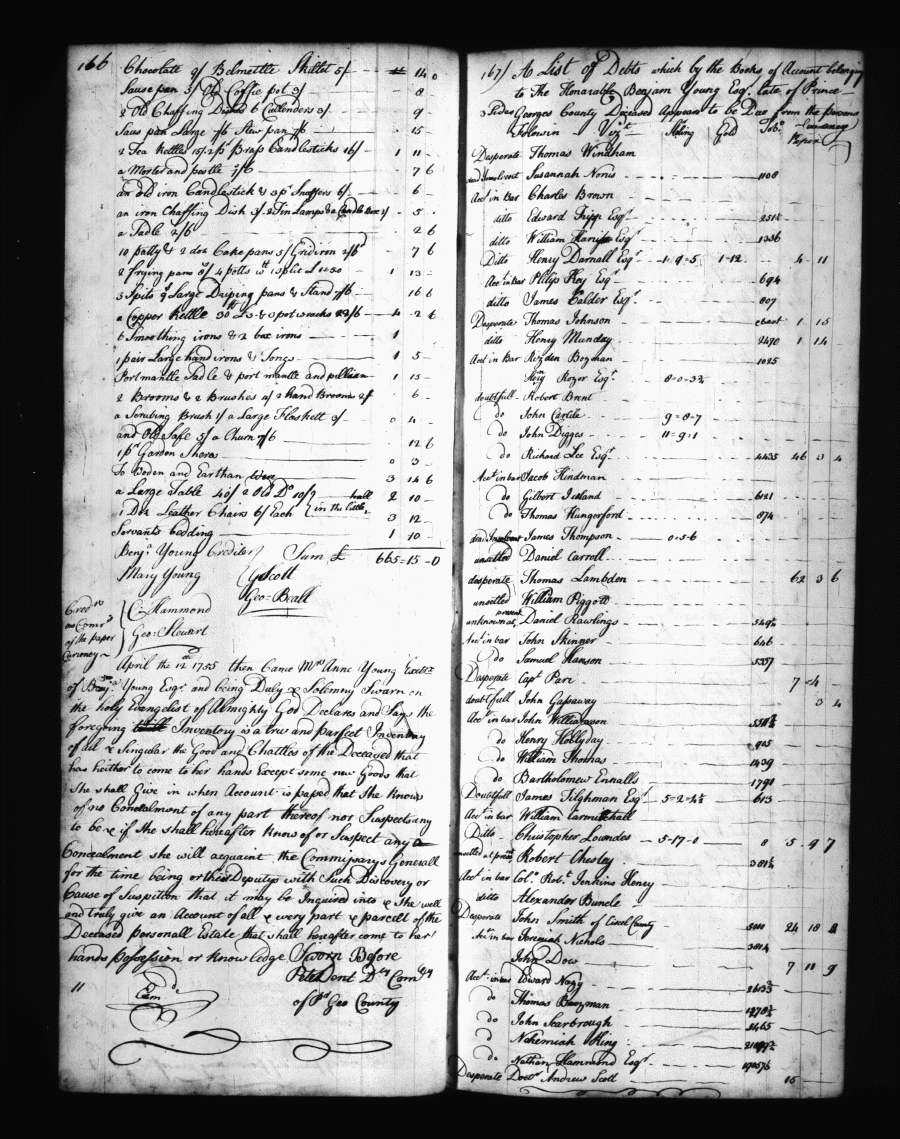 166
Chocolate & Belmettle Skillet 5/ 14 0
Sause pan 3/ Old Coffee pot 3/ 8
2 Old Chaffing Dishes 6 Cullenders 3/ 9
Saus pan Large 7/6 Stew pan 7/6 15
2 Tea Kettles 15/ 2 pr Brass Candlesticks 16/ 1 11
a Morter and pestle 7/6 7 6
an old iron Candlestick & 3 pr Snuffers 6/ 6
an iron Chaffing Dish 3/ 2 Tin Lamps & a Candle Box 2/ 5
a Table 2/6 2 6
10 patty & 2 doz Cake pans 5/ Gridiron 2/6 7 6
2 frying pans 8/ 4 potts wt 1 Split £ 1 13
3 Spits 9/ Large Driping pans & Stand 7/6 16 6
a Copper Kettle 30 & 3 pot wracks 4 2 6
6 Smoothing irons & 2 box irons 1
1 pair Large hand irons & Tongs 1 5
Portmantle Sadle & port mantle and pillian 1 15
2 Brooms & 2 Brushes 4/ 2 hand Brooms 2/ 6
a Scrubing Brush 1/ a Large Flaskett 3/ 0 4
and Old Safe 5/ a Churn 7/6 12 6
1 pr Garden Shers 0 3
To Woden and Earthan Were 3 14 6
a Large Table 40/ 2 Old Do 10/ 2 10
1 Doz Leather Chairs 6/ Each in the little hall 3 12
Servants bedding 1 10
Benja Young Crediter Sum £ 665=15-0
Mary Young G Scott
Geo= Beall
Credrs as Comrs of the paper Currency
C= Hammond
Geo= Stewart
April the 12th 1755 then Came Mrs Anne Young Exectx
of Benja Young Esqr and being Duly & Solemny Swarn on
the holy Evangelist of Almighty God Declares and Says the
foregoing Inventory is a true and parfect Inventory
of all & Singular the Good and Chattles of the Deceased that
has heither to come to her hands Except some new Goods that
She shall Give in when Account is pased that She Knows
of no Concalment of any part thereof nor Suspects any
to be & if She shall hereafter Know of or Suspect any
Concealment she will acquaint the Commissarys Generall
for the time being or thier Deputys with Such Discovery or
Cause of Suspition that it may be Inquired into & She well
and truly give an Account of all & every part & parcell of the
Deceased personall Estate that shall hereafter come to her
hands possession or Knowledge Sworn Before
Pet Dent Dty Comry
of Pr Geo County
11
Examd
167/ A List of Debts which by the Books of Account belonging
to The Honarable Benjam Young Esqr late of Prince
Georges County Deceased Appears to be Due from the persons
Folowin Vizt Sterling Gold Tobo paper Currancy
Desperate Thomas Windham
dead Insolvent Susannah Norris 1108
Acct in Bar Charles Brown
ditto Edward Tripp Esqr
ditto William Esqr 1336
Ditto Henry Darnall Esqr 1-9-5 1-12 4 11
Acct in Bar Philip Key Esqr 694
ditto James Calder Esqr 807
Desperate Thomas Johnson 1 15
ditto Henry Munday 2470 1 14
Acct in Bar Rizden Bozman 1025
Royer Esqr 8=0=3¾
doubtfull Robert Brent
do John Carlile 9=8=7
do John Digges 11=9=1
do Richard Lee Esqr 4435 46 3 4
Acct in bar Jacob Hindman
do Gilbert Ireland
do Thomas Hungerford 874
dead Insolvent James Thompson 0=5=6
unsettled Daniel Carroll
desperate Thomas Lambden 62 3 6
unsetled William Piggott
unknown at present Daniel Rawlings
Acct in bar John Skinner 646
do Samuel Hanson 5357
Desperate Capt Parr 7 4
doubtfull John Gassaway 3 4
Acct in bar John Williamson
do Henry Hollyday 905
do William Thomas 1439
do Bartholomew Ennalls
Doubtfull James Tilghman Esqr 5=2=4½ 613
Acct in bar William Carmitchall
Ditto Christopher Lowndes 5-17-0 8 5 9 7
Robert Chesley
Acct in bar Colo Robt Jenkins Henry
ditto Alexander Buncle
Desperate John Smith of Cicel County 24 18
Acct in bar Jeremiah Nichols
John Dow 7 10 9
Acct in bar Edward
do Thomas Bozman
do John Scarbrough 2465
do Nehemiah King
do Nathan Hammond Esqr
Desperate Doctr Andrew Scott 16